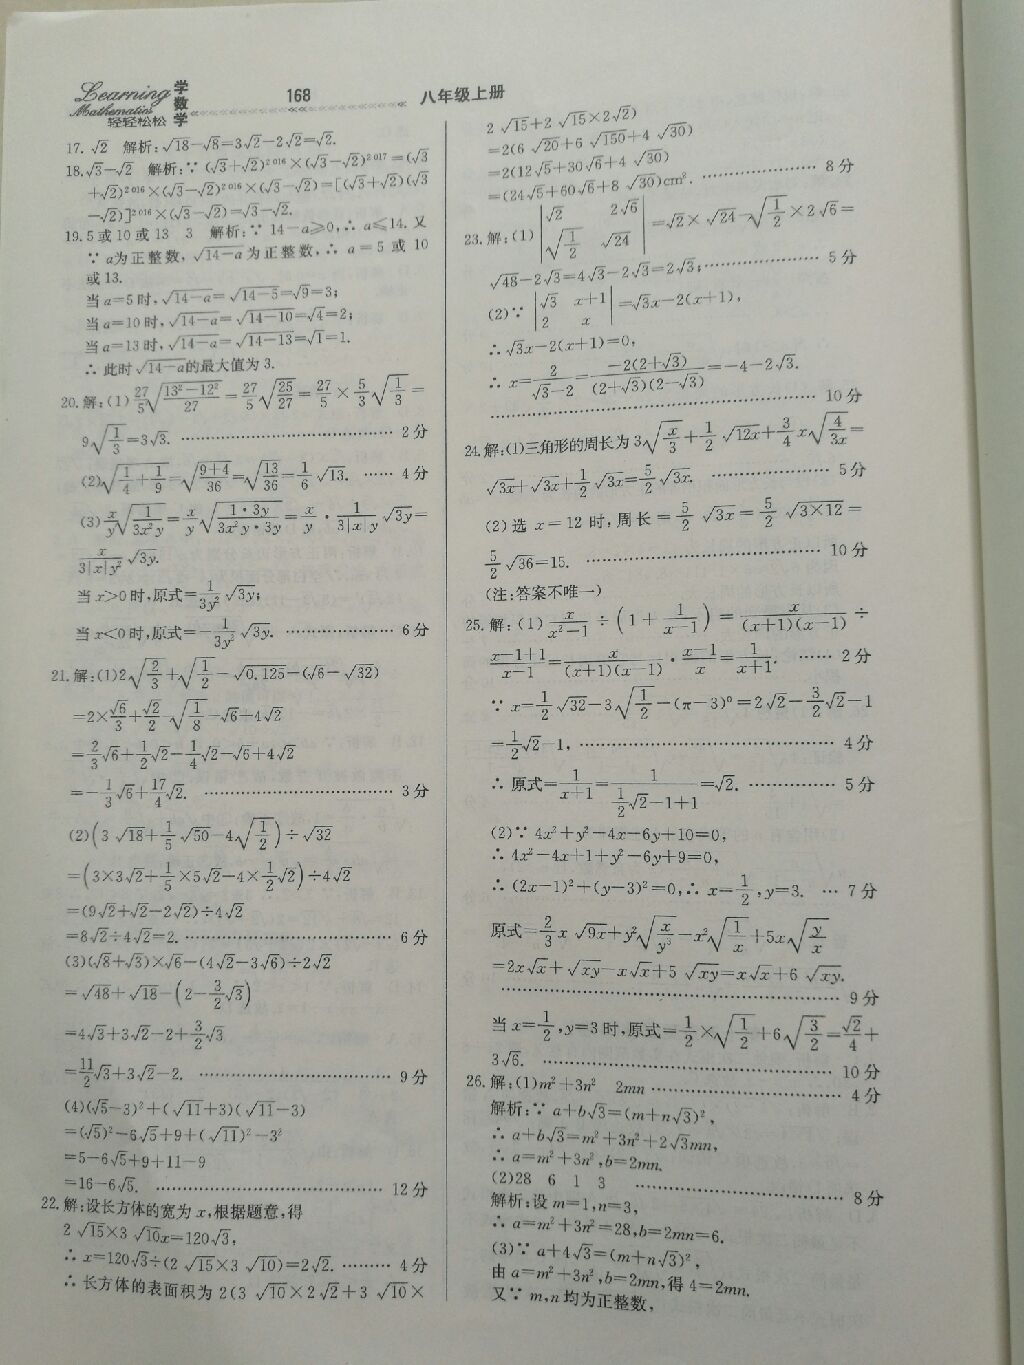 Learning 学数学
Mathematics
轻轻松松
168
八年级上册
17. √2 解析:√18−√8=3√2−2√2=√2.
18.√3−√2 解析:∵(√3+√2)²⁰¹⁶×(√3−√2)²⁰¹⁷=(√3
+√2)²⁰¹⁶×(√3−√2)²⁰¹⁶×(√3−√2)=[(√3+√2)(√3
−√2)]²⁰¹⁶×(√3−√2)=√3−√2.
19.5或10或13 3 解析:∵14−a≥0,∴a≤14.又
∵a为正整数,√(14−a)为正整数,∴a=5或10
或13.
当a=5时,√(14−a)=√(14−5)=√9=3;
当a=10时,√(14−a)=√(14−10)=√4=2;
当a=13时,√(14−a)=√(14−13)=√1=1.
∴此时√(14−a)的最大值为3.
20.解:(1)27/5√((13²−12²)/27)=27/5√(25/27)=27/5×5/3√(1/3)=
9√(1/3)=3√3. ……2分
(2)√(1/4+1/9)=√((9+4)/36)=√(13/36)=1/6√13. ……4分
(3)x/y√(1/(3x²y))=x/y√((1·3y)/(3x²y·3y))=x/y·1/(3|x|y)√(3y)=
x/(3|x|y²)√(3y).
当x>0时,原式=1/(3y²)√(3y);
当x<0时,原式=−1/(3y²)√(3y). ……6分
21.解:(1)2√(2/3)+√(1/2)−√0.125−(√6−√32)
=2×√6/3+√2/2−√(1/8)−√6+4√2
=2/3√6+1/2√2−1/4√2−√6+4√2
=−1/3√6+17/4√2. ……3分
(2)(3√18+1/5√50−4√(1/2))÷√32
=(3×3√2+1/5×5√2−4×1/2√2)÷4√2
=(9√2+√2−2√2)÷4√2
=8√2÷4√2=2. ……6分
(3)(√8+√3)×√6−(4√2−3√6)÷2√2
=√48+√18−(2−3/2√3)
=4√3+3√2−2+3/2√3
=11/2√3+3√2−2. ……9分
(4)(√5−3)²+(√11+3)(√11−3)
=(√5)²−6√5+9+(√11)²−3²
=5−6√5+9+11−9
=16−6√5. ……12分
22.解:设长方体的宽为x,根据题意,得
2√15×3√10x=120√3,
∴x=120√3÷(2√15×3√10)=2√2. ……4分
∴长方体的表面积为2(3√10×2√2+3√10×
2√15+2√15×2√2)
=2(6√20+6√150+4√30)
=2(12√5+30√6+4√30)
=(24√5+60√6+8√30)cm². ……8分
23.解:(1)|√2 2√6; √(1/2) √24|=√2×√24−√(1/2)×2√6=
√48−2√3=4√3−2√3=2√3; ……5分
(2)∵|√3 x+1; 2 x|=√3x−2(x+1),
∴√3x−2(x+1)=0,
∴x=2/(√3−2)=−2(2+√3)/((2+√3)(2−√3))=−4−2√3.
……10分
24.解:(1)三角形的周长为3√(x/3)+1/2√(12x)+3/4x√(4/(3x))=
√(3x)+√(3x)+1/2√(3x)=5/2√(3x). ……5分
(2)选x=12时,周长=5/2√(3x)=5/2√(3×12)=
5/2√36=15. ……10分
(注:答案不唯一)
25.解:(1)x/(x²−1)÷(1+1/(x−1))=x/((x+1)(x−1))÷
(x−1+1)/(x−1)=x/((x+1)(x−1))·(x−1)/x=1/(x+1). ……2分
∵x=1/2√32−3√(1/2)−(π−3)⁰=2√2−3/2√2−1
=1/2√2−1, ……4分
∴原式=1/(x+1)=1/(1/2√2−1+1)=√2. ……5分
(2)∵4x²+y²−4x−6y+10=0,
∴4x²−4x+1+y²−6y+9=0,
∴(2x−1)²+(y−3)²=0,∴x=1/2,y=3. …7分
原式=2/3x√(9x)+y²√(x/y³)−x²√(1/x)+5x√(y/x)
=2x√x+√(xy)−x√x+5√(xy)=x√x+6√(xy).
……9分
当x=1/2,y=3时,原式=1/2×√(1/2)+6√(3/2)=√2/4+
3√6. ……10分
26.解:(1)m²+3n² 2mn ……4分
解析:∵a+b√3=(m+n√3)²,
∴a+b√3=m²+3n²+2√3mn,
∴a=m²+3n²,b=2mn.
(2)28 6 1 3 ……8分
解析:设m=1,n=3,
∴a=m²+3n²=28,b=2mn=6.
(3)∵a+4√3=(m+n√3)²,
由a=m²+3n²,b=2mn,得4=2mn.
又∵m,n均为正整数,